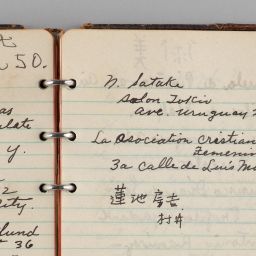 50.
as
ulate
y.
2
ity.
lund
36
N. Satake
Salon Tokio
ave. Uruguay
La Asociation Cristian
Femenin
3a calle de Luis M
蓮池房吉
村井